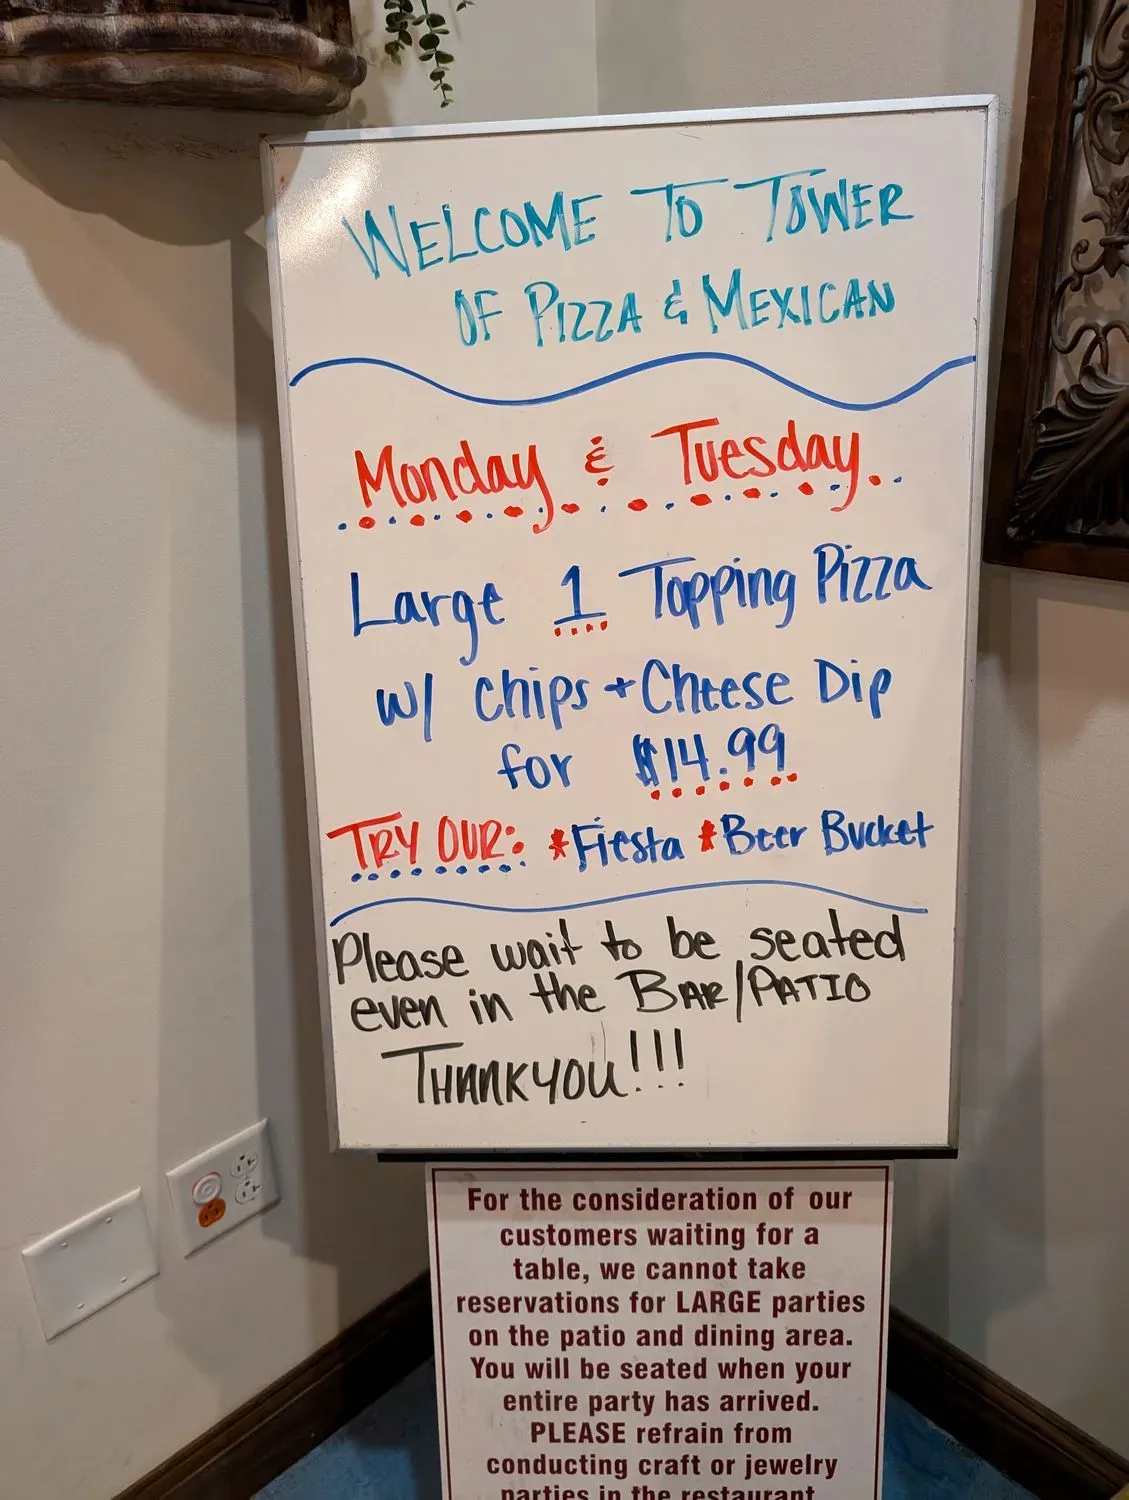 WELCOME TO TOWER
OF PIZZA & MEXICAN
Monday & Tuesday
Large 1 Topping Pizza
w/ chips + Cheese Dip
for $14.99
TRY OUR: *Fiesta *Beer Bucket
Please wait to be seated
even in the BAR/PATIO
THANKYOU!!!
For the consideration of our
customers waiting for a
table, we cannot take
reservations for LARGE parties
on the patio and dining area.
You will be seated when your
entire party has arrived.
PLEASE refrain from
conducting craft or jewelry
parties in the restaurant